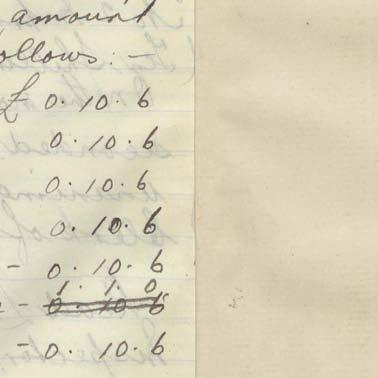 amount
ollows: -
£ 0. 10. 6
0. 10. 6
0. 10. 6
0. 10. 6
- 0. 10. 6
1. 1. 0
- 0. 10 6
- 0. 10. 6